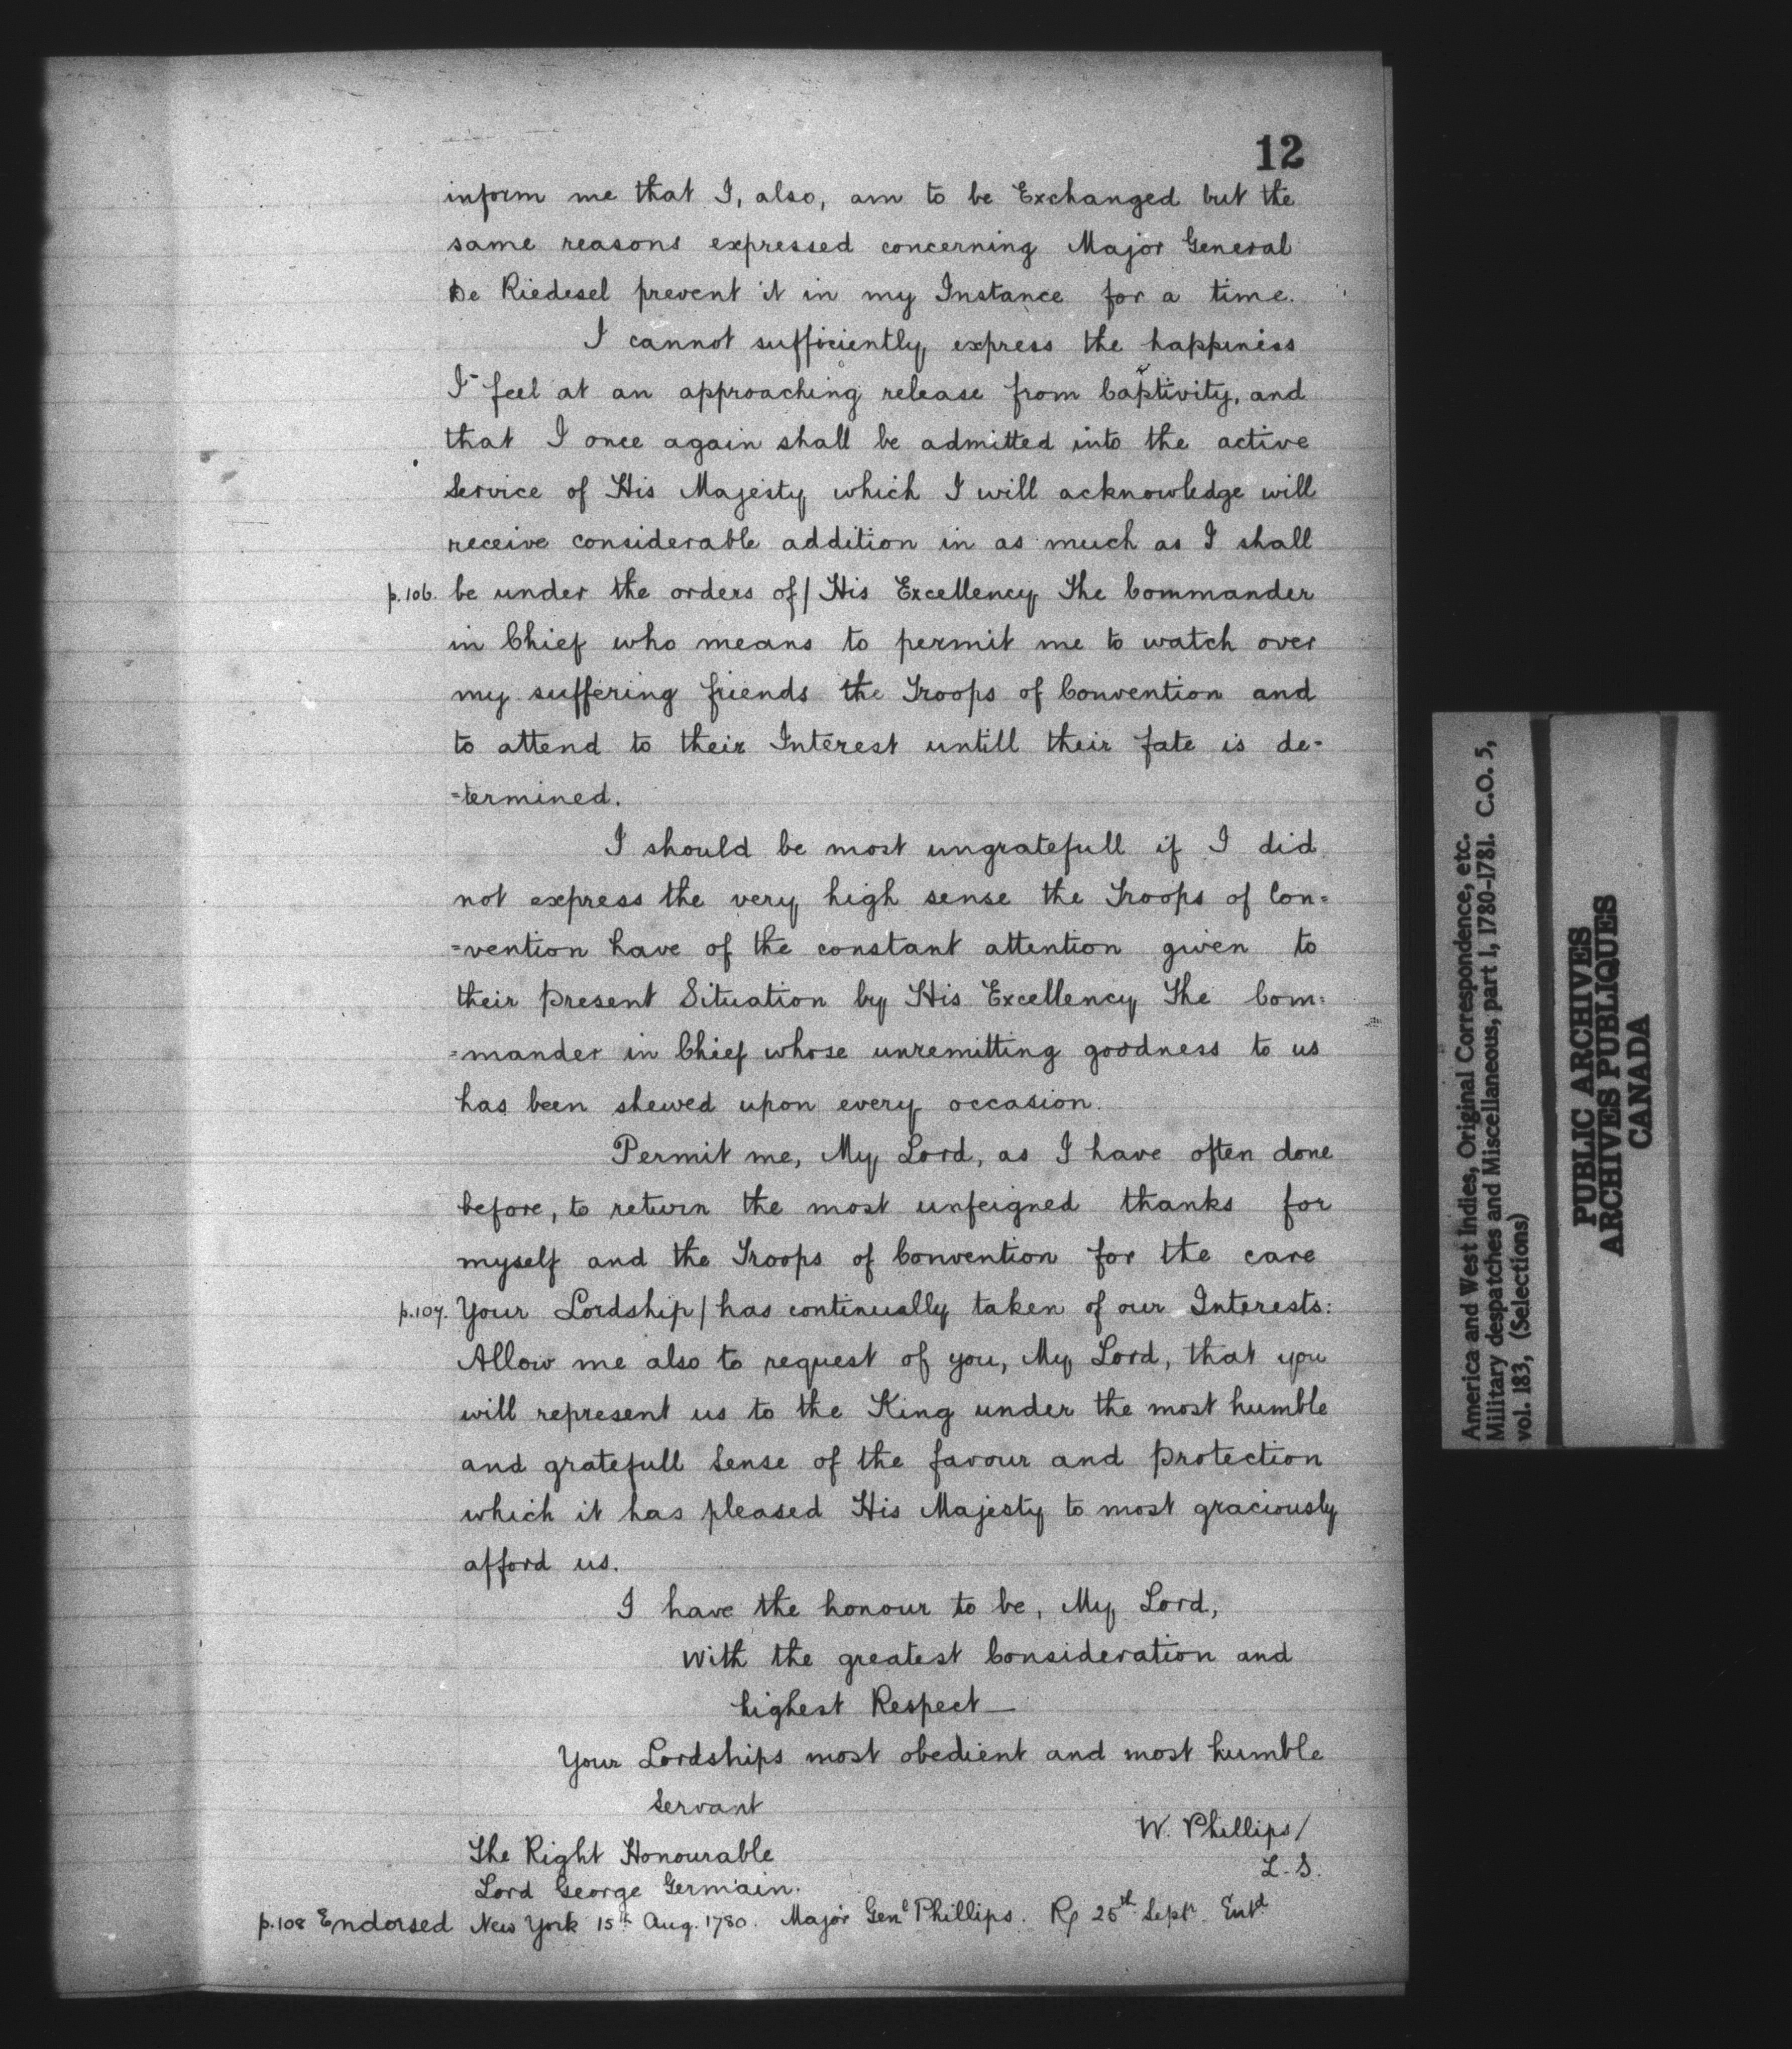 12
inform me that I, also, am to be Exchanged but the
same reasons expressed concerning Major General
De Riedesel prevent it in my Instance for a time.
I cannot sufficiently express the happiness
I feel at an approaching release from Captivity, and
that I once again shall be admitted into the active
Service of His Majesty which I will acknowledge will
receive considerable addition in as much as I shall
p.106. be under the orders of/ His Excellency The Commander
in Chief who means to permit me to watch over
my suffering friends the Troops of Convention and
to attend to their Interest untill their fate is de=
=termined.
I should be most ungratefull if I did
not express the very high sense the Troops of Con=
=vention have of the constant attention given to
their present Situation by His Excellency The Com=
=mander in Chief whose unremitting goodness to us
has been shewed upon every occasion.
Permit me, My Lord, as I have often done
before, to return the most unfeigned thanks for
myself and the Troops of Convention for the care
p.107. Your Lordship/ has continually taken of our Interests:
Allow me also to request of you, My Lord, that you
will represent us to the King under the most humble
and gratefull Sense of the favour and protection
which it has pleased His Majesty to most graciously
afford us.
I have the honour to be, My Lord,
With the greatest Consideration and
highest Respect—
Your Lordships most obedient and most humble
Servant
W. Phillips/
L.S.
The Right Honourable
Lord George Germain.
p.108 Endorsed New York 15th Aug. 1780. Major Genl Phillips. R/ 25th Septr. Entd
America and West Indies, Original Correspondence, etc.
Military despatches and Miscellaneous, part 1, 1780-1781. C.O. 5,
vol. 183, (Selections)
PUBLIC ARCHIVES
ARCHIVES PUBLIQUES
CANADA